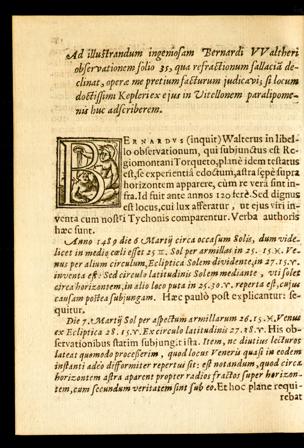 Ad illustrandum ingeniosam Bernardi VValtheri
observationem folio 35, qua refractionum fallaciã de-
clinat, operæ me pretium facturum judicavi; si locum
doctissimi Kepleri ex ejus in Vitellonem paralipome-
nis huc adscriberem.
BERNARDVS (inquit) Walterus in libel-
lo observationum, qui subjunctus est Re-
giomontani Torqueto, planè idem testatus
est, se experientiâ edoctum, astra sępè supra
horizontem apparere, cùm re verâ sint in-
fra. Id fuit ante annos 120 ferè. Sed dignus
est locus, cui lux afferatur, ut ejus viri in-
venta cum nostri Tychonis comparentur. Verba authoris
hæc sunt.
Anno 1489 die 6 Martij circa occasum Solis, dum vide-
licet in medio cœli esset 25 ♊. Sol per armillas in 25.15.♓. Ve-
nus per alium circulum, Ecliptica Solem dividente, in 27.15.♈.
inventa est: Sed circulo latitudinis Solem mediante, uti solet
circa horizontem, in alio loco puta in 25.30.♈. reperta est, cujus
causam postea subjungam. Hæc paulò post explicantur: se-
quitur.
Die 7. Martij Sol per aspectum armillarum 26.15.♓. Venus
ex Ecliptica 28.15.♈. Ex circulo latitudinis 27.28.♈. His ob-
servationibus statim subjungit ista. Item, ne diutius lecturos
lateat quomodo processerim, quod locus Veneris quasi in eodem
instanti adeo difformiter repertus sit: est notandum, quod circa
horizontem astra apparent propter radios fractos super horizon-
tem, cum secundum veritatem sint sub eo. Et hoc plane requi-
rebat